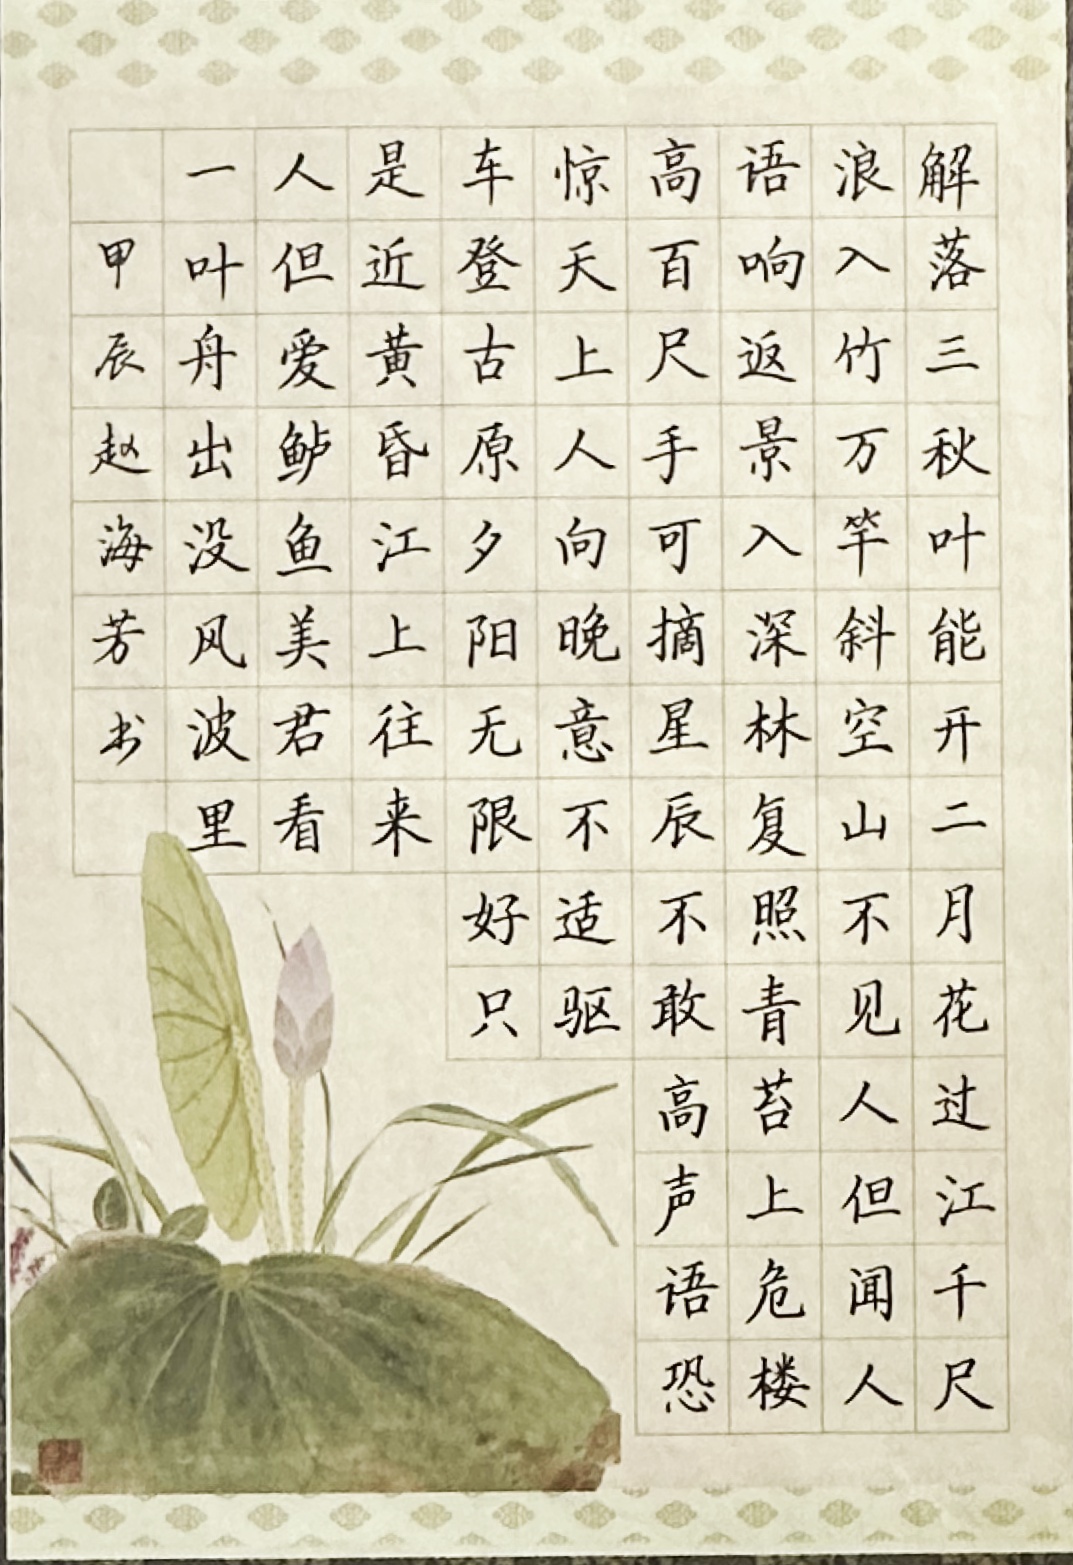 解落三秋叶能开二月花过江千尺
浪入竹万竿斜空山不见人但闻人
语响返景入深林复照青苔上危楼
高百尺手可摘星辰不敢高声语恐
惊天上人向晚意不适驱
车登古原夕阳无限好只
是近黄昏江上往来
人但爱鲈鱼美君看
一叶舟出没风波里
甲辰赵海芳书